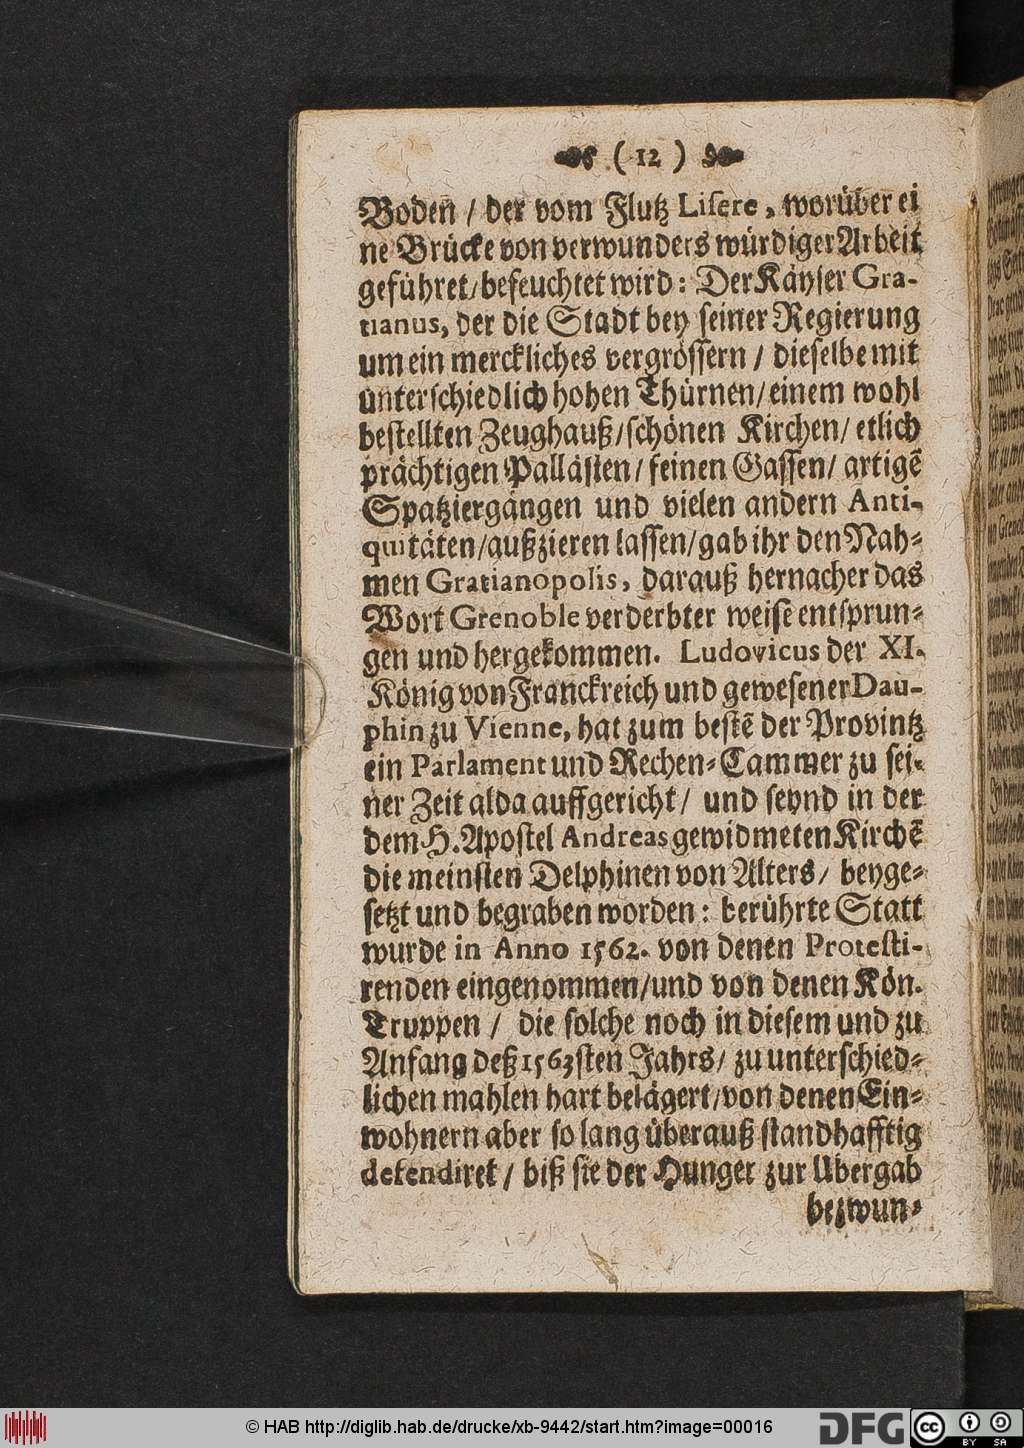 ( 12 )
Boden / der vom Flutz Lisere, worüber ei
ne Brücke von verwunders würdiger Arbeit
geführet / befeuchtet wird: Der Käyser Gra-
tianus, der die Stadt bey seiner Regierung
um ein merckliches vergrössern / dieselbe mit
unterschiedlich hohen Thürnen / einem wohl
bestellten Zeughauß / schönen Kirchen / etlich
prächtigen Pallästen / feinen Gassen / artigē
Spatziergängen und vielen andern Anti-
quitäten / außzieren lassen / gab ihr den Nah-
men Gratianopolis, darauß hernacher das
Wort Grenoble verderbter weise entsprun-
gen und hergekommen. Ludovicus der XI.
König von Franckreich und gewesener Dau-
phin zu Vienne, hat zum bestē der Provintz
ein Parlament und Rechen-Cammer zu sei-
ner Zeit alda auffgericht / und seynd in der
dem H. Apostel Andreas gewidmeten Kirchē
die meinsten Delphinen von Alters / beyge-
setzt und begraben worden: berührte Statt
wurde in Anno 1562. von denen Protesti-
renden eingenommen / und von denen Kön.
Truppen / die solche noch in diesem und zu
Anfang deß 1563sten Jahrs / zu unterschied-
lichen mahlen hart belägert / von denen Ein-
wohnern aber so lang überauß standhafftig
defendiret / biß sie der Hunger zur Ubergab
bezwun-
© HAB http://diglib.hab.de/drucke/xb-9442/start.htm?image=00016
DFG
CC BY SA